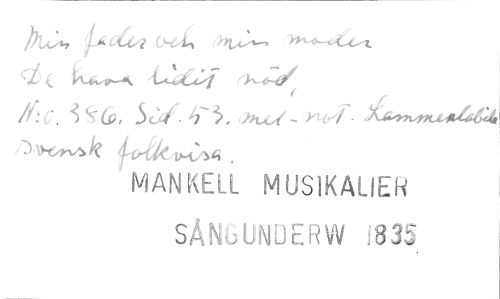 Min fader och min moder
De hava lidit nöd,
N:o. 386. Sid. 53. mel-not.
svensk folkvisa.
MANKELL MUSIKALIER
SÅNGUNDERW 1835